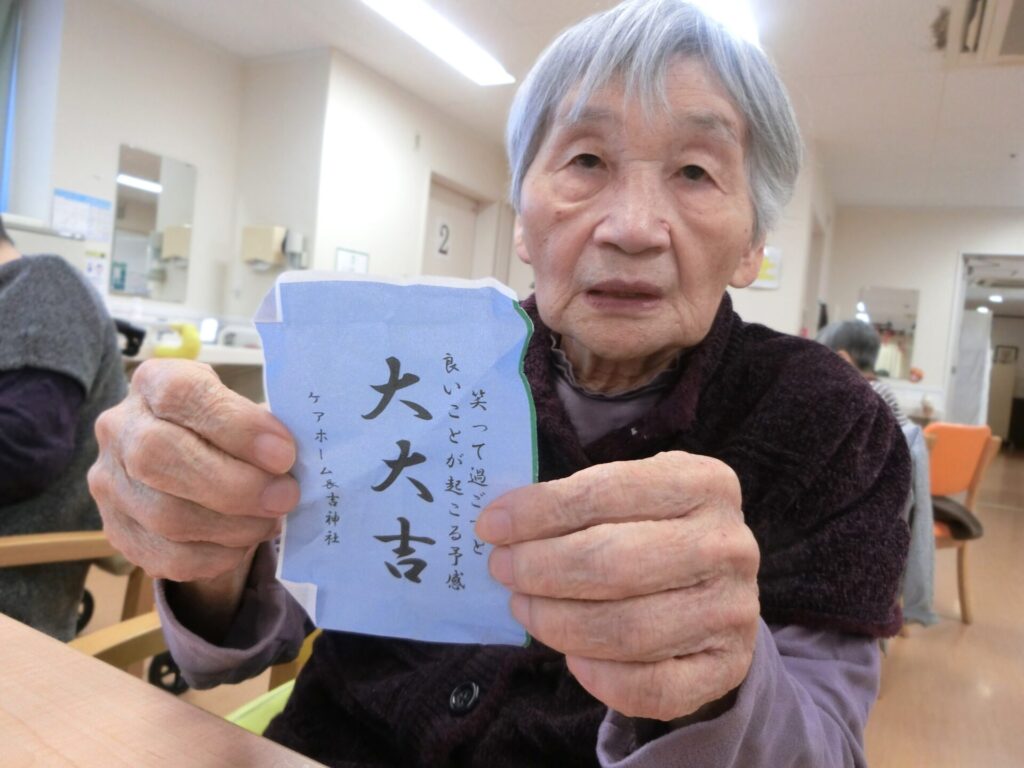 笑って過ごすと
良いことが起こる予感
大大吉
ケアホーム長吉神社
2